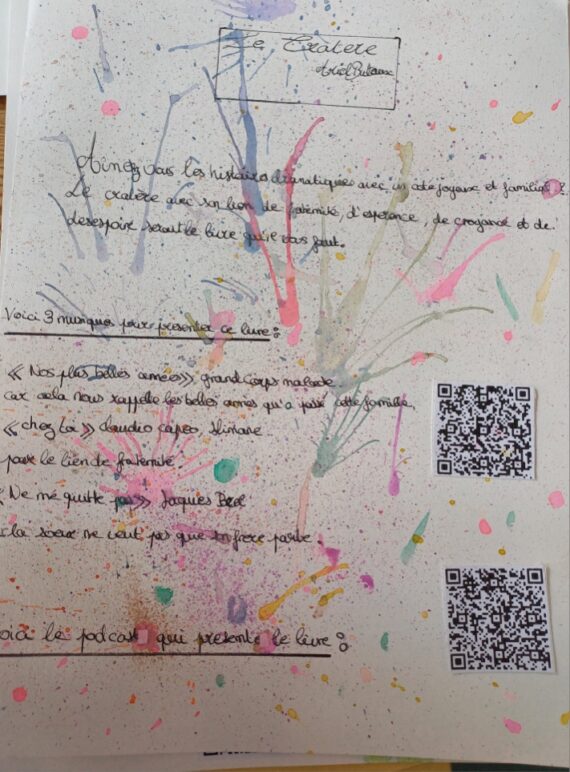 Le Cratère
Ariel Butaux
Aimez vous les histoires dramatiques avec un coté joyeux et familial ?
Le cratère avec son lien de fraternité, d'esperence, de croyance et de
desespoir serait le livre qu'il vous faut.
Voici 3 musiques pour presenter ce livre :
« Nos plus belles années » grand corps malade
car cela nous rappelle les belles annes qu'a passé cette famille.
« chez toi » claudio capeo, slimane
pour le lien de fraternité.
« Ne me quitte pas » Jaques Brel
la soeur ne veut pas que son frere parte.
oici le podcast qui presente le livre :